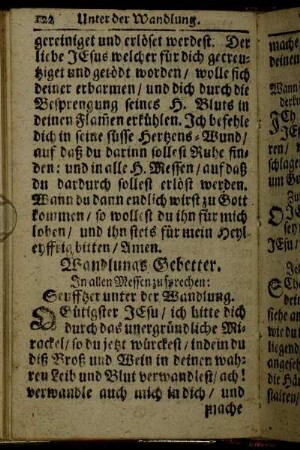 122 Unter der Wandlung.
gereiniget und erlöset werdest. Der
liebe JEsus welcher für dich gecreu-
tziget und getödt worden / wolle sich
deiner erbarmen / und dich durch die
Besprengung seines H. Bluts in
deinen Flam̃en erkühlen. Ich befehle
dich in seine süsse Hertzens-Wund /
auf daß du darinn sollest Ruhe fin-
den: und in alle H. Messen / auf daß
du dardurch sollest erlöst werden.
Wann du dann endlich wirst zu Gott
kommen / so wollest du ihn für mich
loben / und ihn stets für mein Heyl
eyffrig bitten / Amen.
Wandlungs Gebetter.
In allen Messen zu sprechen:
Seufftzer unter der Wandlung.
O Gütigster JEsu / ich bitte dich
durch das unergründliche Mi-
rackel / so du jetzt würckest / indem du
diß Brod und Wein in deinen wah-
ren Leib und Blut verwandlest / ach!
verwandle auch mich in dich / und
mache
mache
deinen
Wann
JCh
um Go